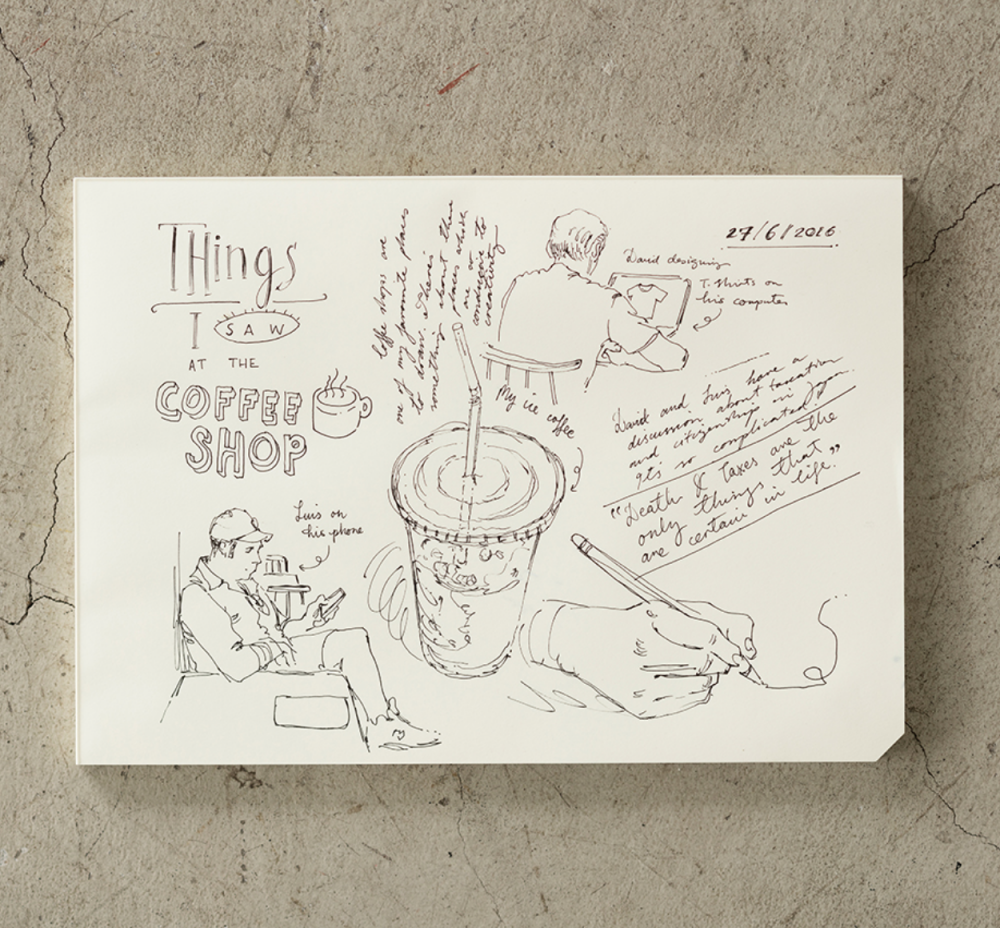 Things
I SAW
AT THE
COFFEE
SHOP
Coffee shops are
one of my favourite places
to draw. There's
something about these
places which
are so
conducive to
creativity
27/6/2016
David designing
T-Shirts on
his computer
My ice coffee
David and Luis have a
discussion about taxation
and citizenship in Japan.
It's so complicated!
"Death & Taxes are the
only things that
are certain in life."
Luis on
his phone